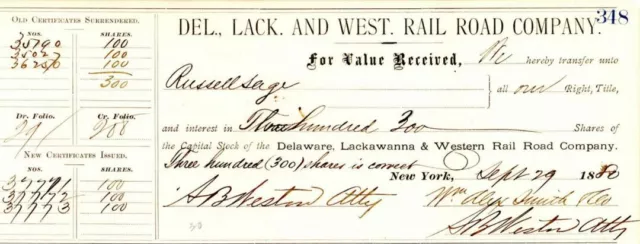 348
OLD CERTIFICATES SURRENDERED.
NOS. SHARES.
35790 100
35027 100
36250 100
300
Dr. Folio. Cr. Folio.
29 288
NEW CERTIFICATES ISSUED.
NOS. SHARES.
37771 100
37772 100
37773 100
DEL., LACK. AND WEST. RAIL ROAD COMPANY.
For Value Received, We hereby transfer unto
Russell Sage all our Right, Title,
and interest in Three hundred 300 Shares of
the Capital Stock of the Delaware, Lackawanna & Western Rail Road Company.
Three hundred (300) shares is correct
New York, Sept 29 1880
S B Weston Atty Wm Alex Smith & Co
S B Weston Atty